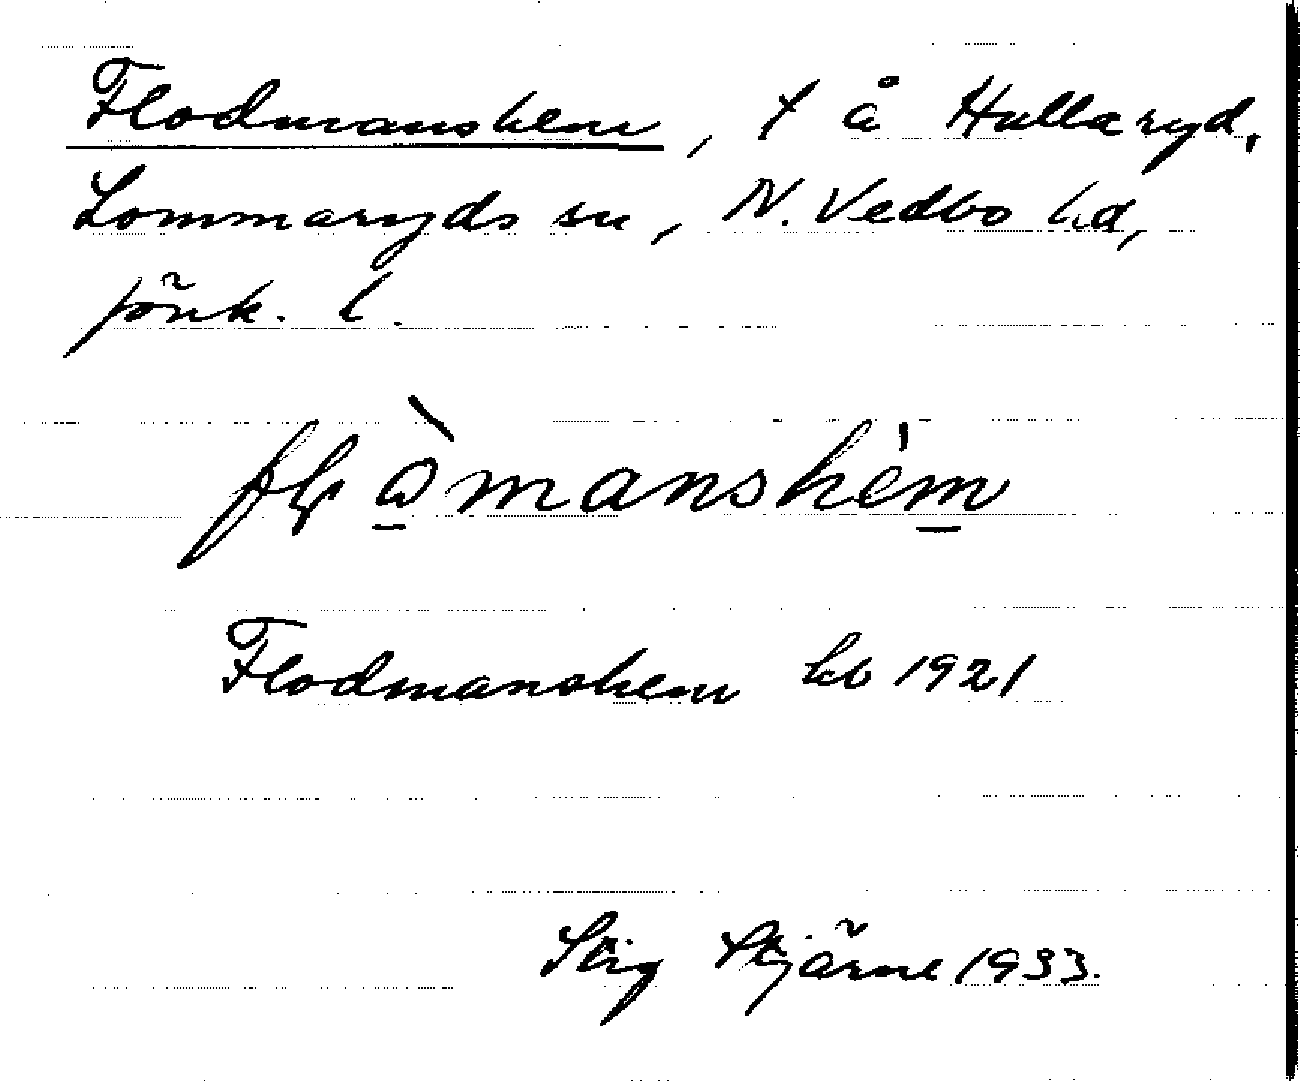 Flodmanshem, t å Hullaryd,
Lommaryds sn, N. Vedbo hd,
Jönk. l.
Flodmanshem kb 1921
Stig Stjärne 1933.